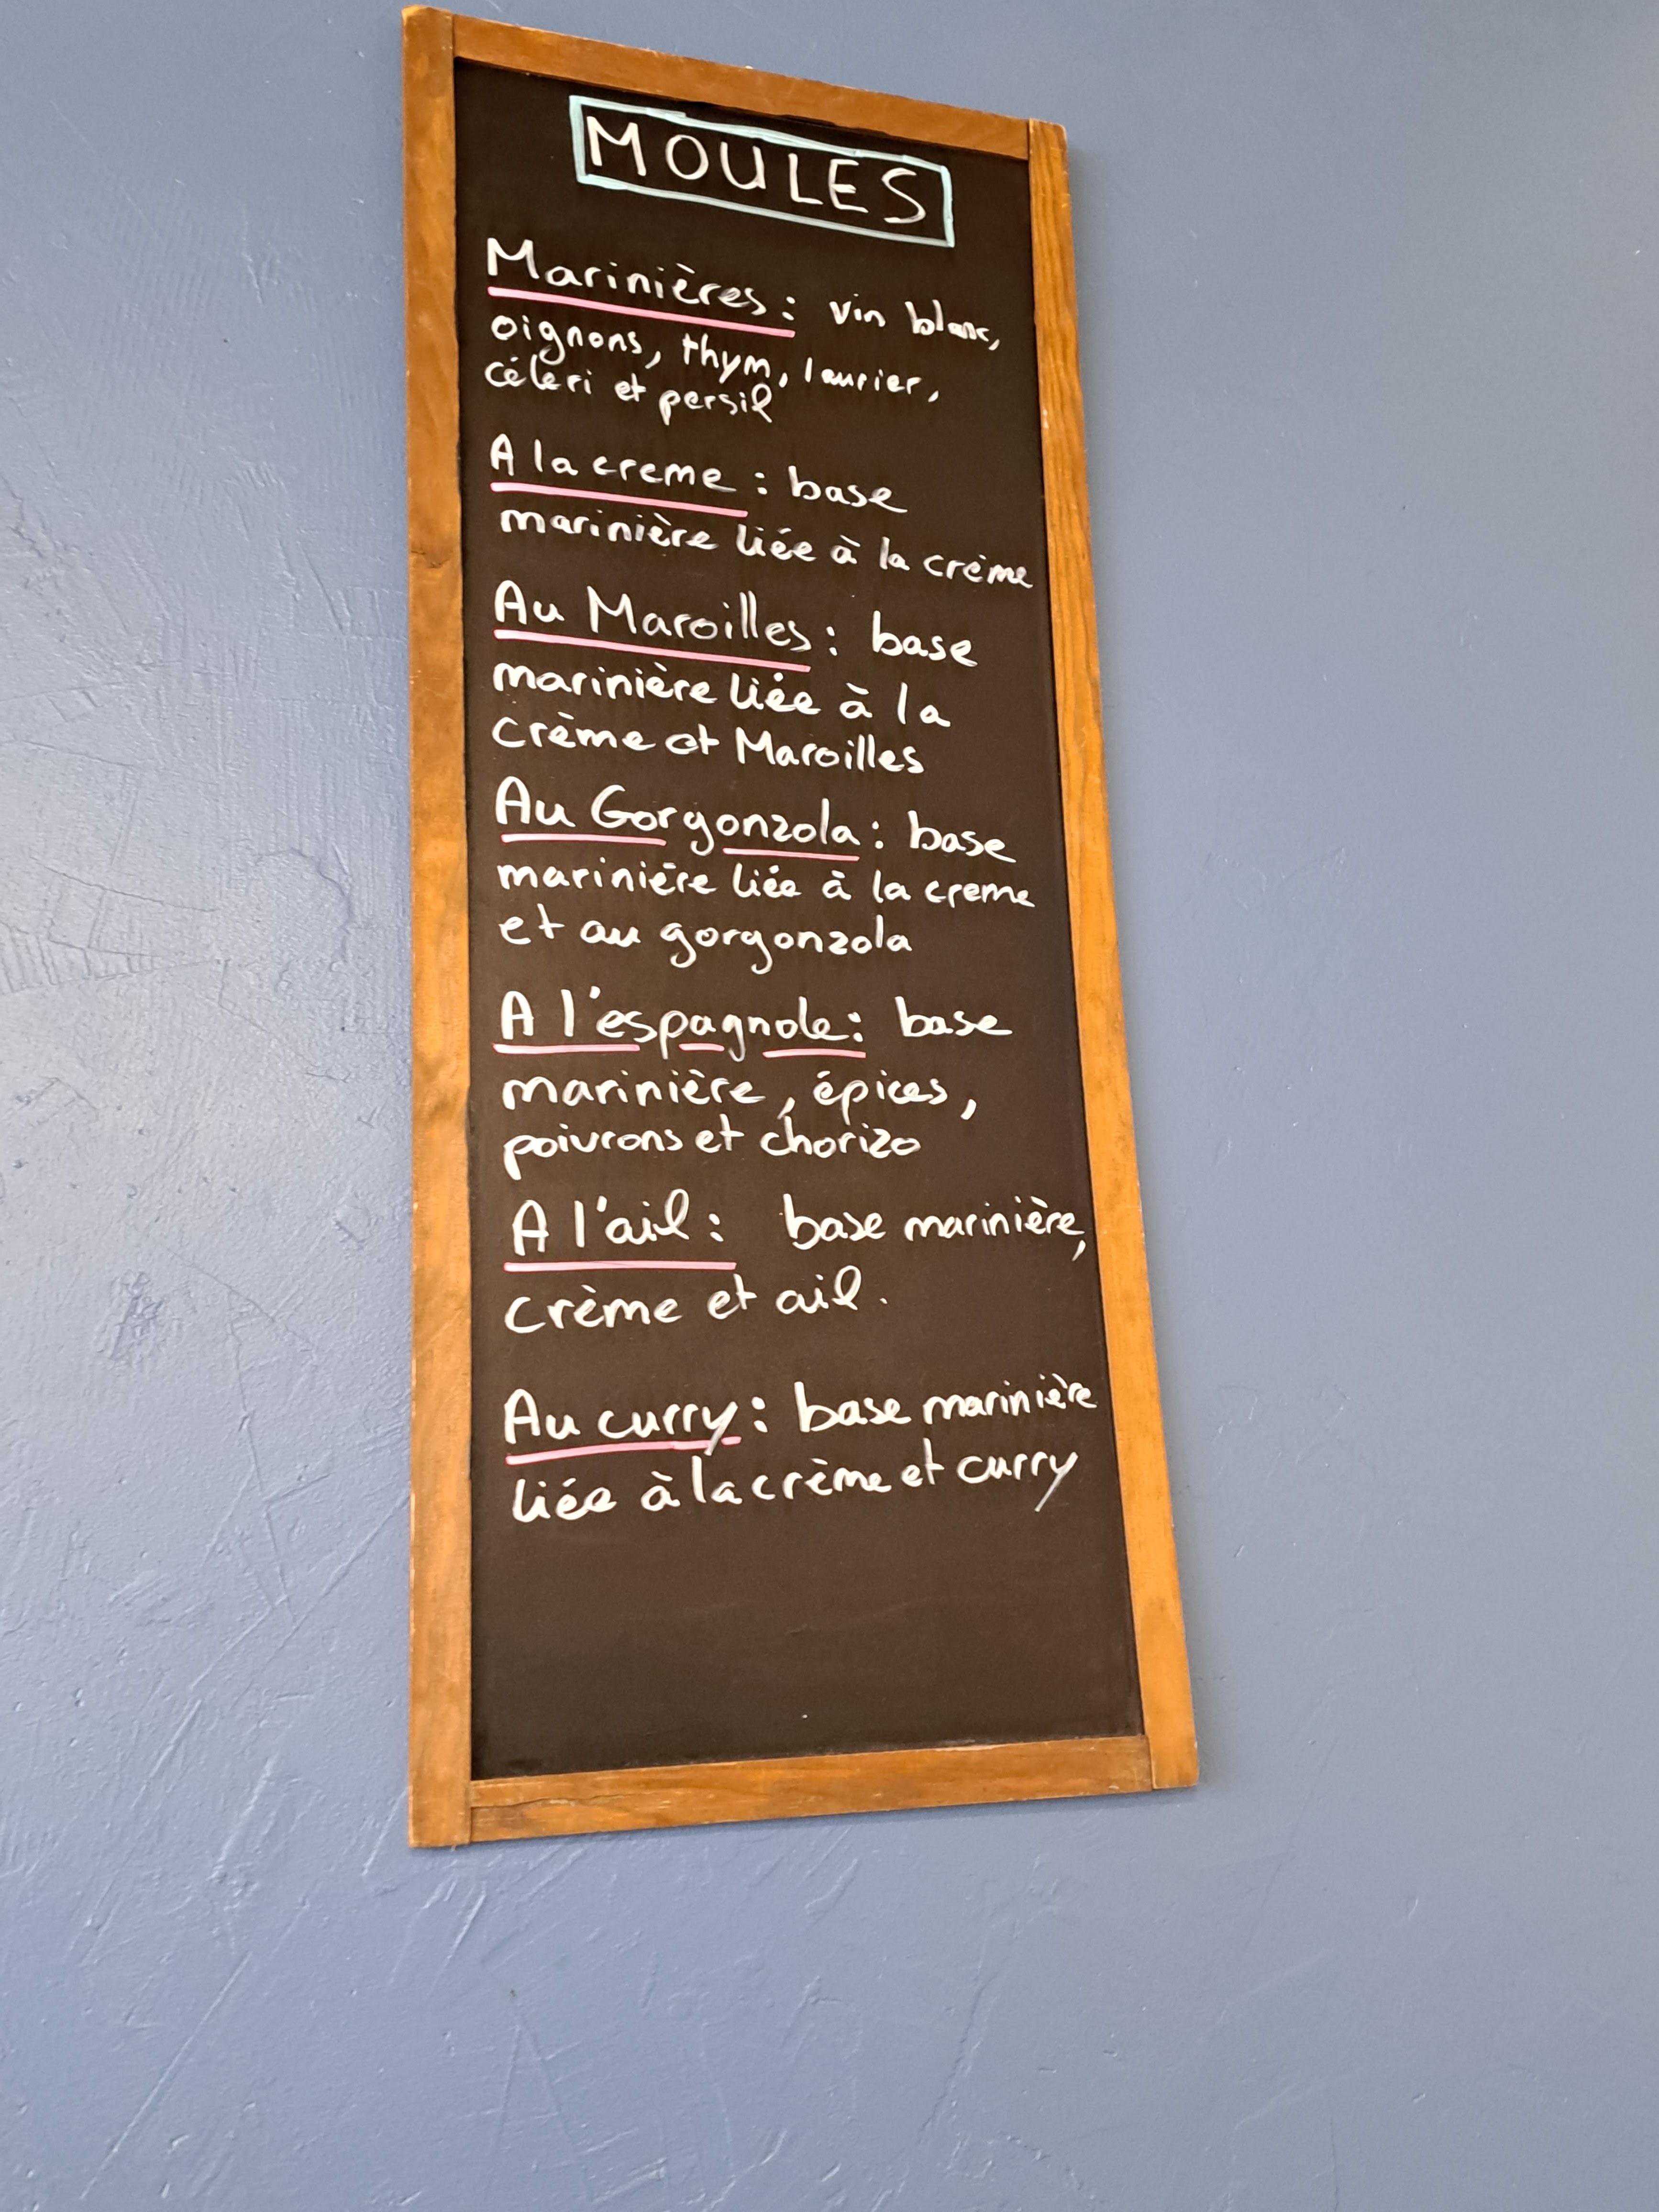 MOULES
Marinières : vin blanc,
oignons, thym, laurier,
céleri et persil
A la creme : base
marinière liée à la crème
Au Maroilles : base
marinière liée à la
crème et Maroilles
Au Gorgonzola : base
marinière liée à la creme
et au gorgonzola
A l'espagnole : base
marinière, épices,
poivrons et chorizo
A l'ail : base marinière,
crème et ail.
Au curry : base marinière
liée à la crème et curry